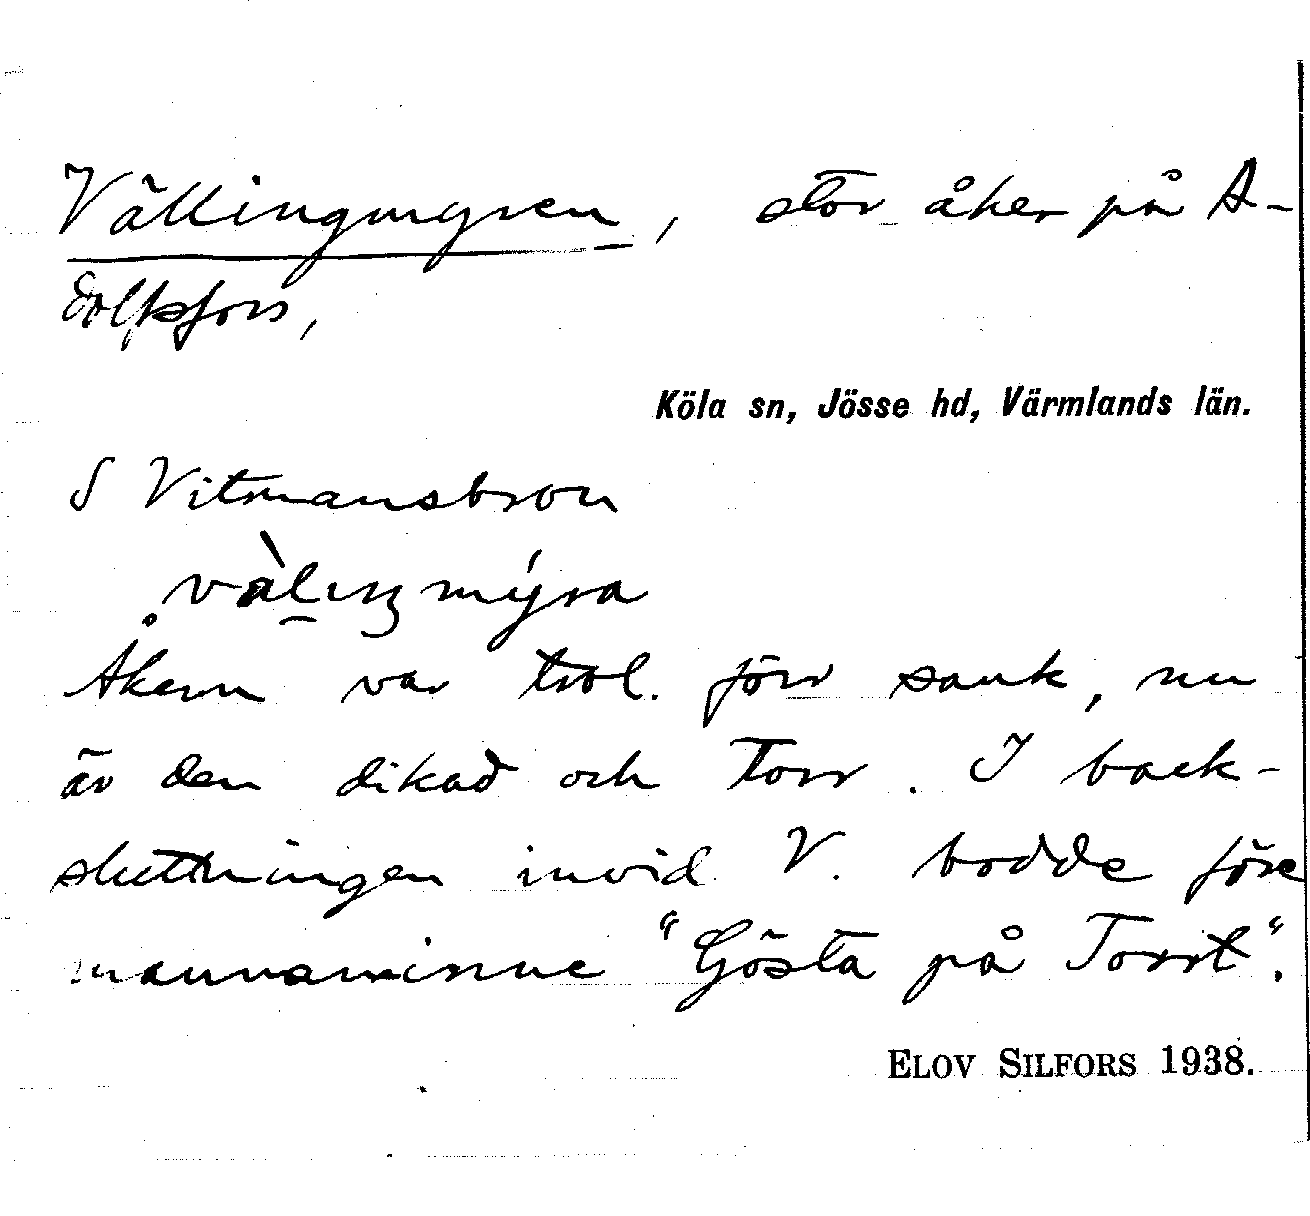 Vällingmyren, stor åker på A-
dolfsfors,
Köla sn, Jösse hd, Värmlands län.
S Vitmansbron
vàlıŋmýra
Åkern var trol. förr sank, nu
är den dikad och torr. I back-
sluttningen invid V. bodde före
mannaminne "Gösta på Torst".
ELOV SILFORS 1938.